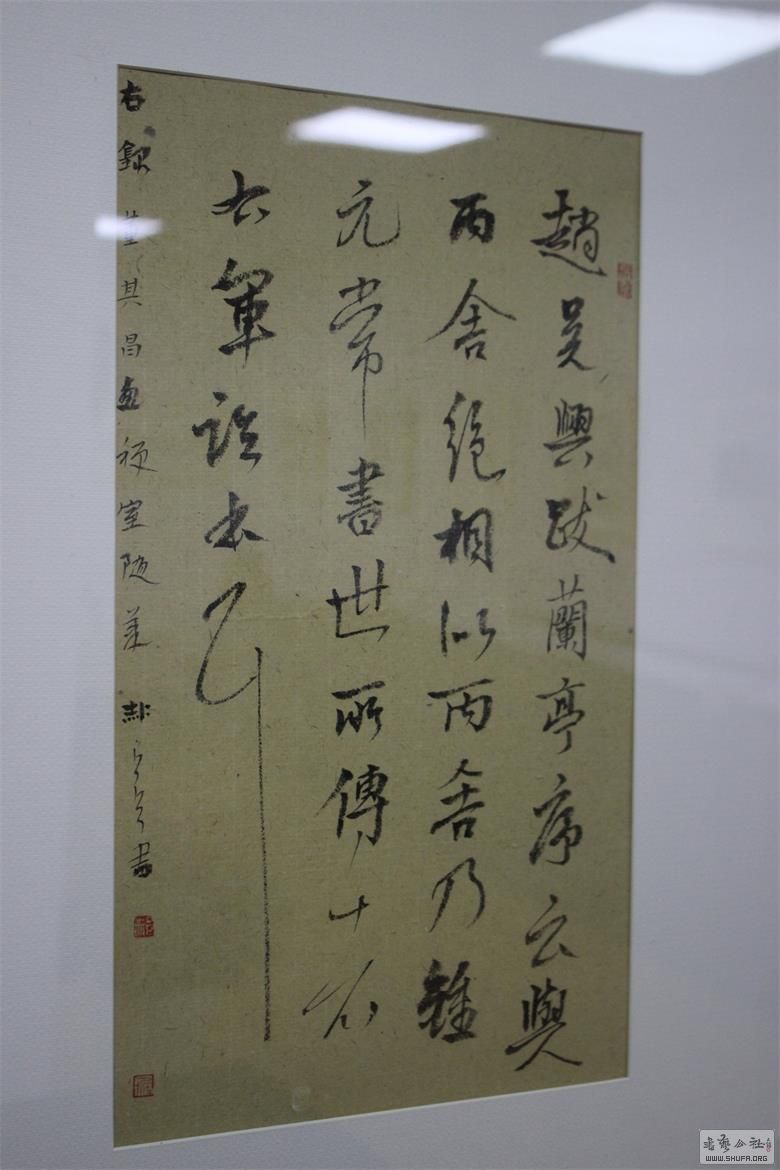 趙吴興跋蘭亭序云與
丙舍絶相似丙舍乃鍾
元常書世所傳止有
右軍臨本耳
右録董其昌畫禪室随筆 書
書藝公社
WWW.SHUFA.ORG